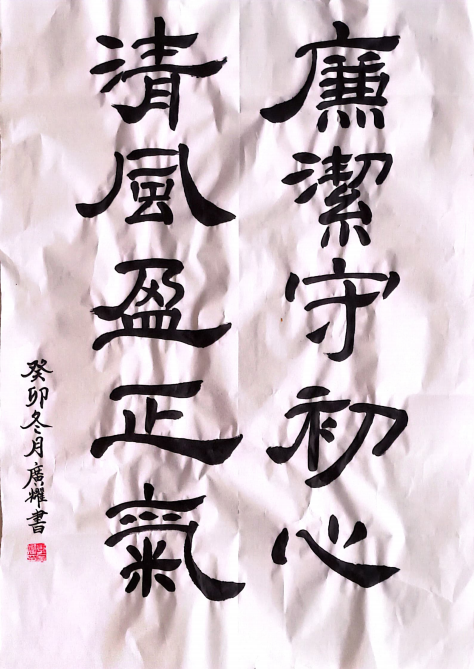 廉潔守初心
清風盈正氣
癸卯冬月廣耀書